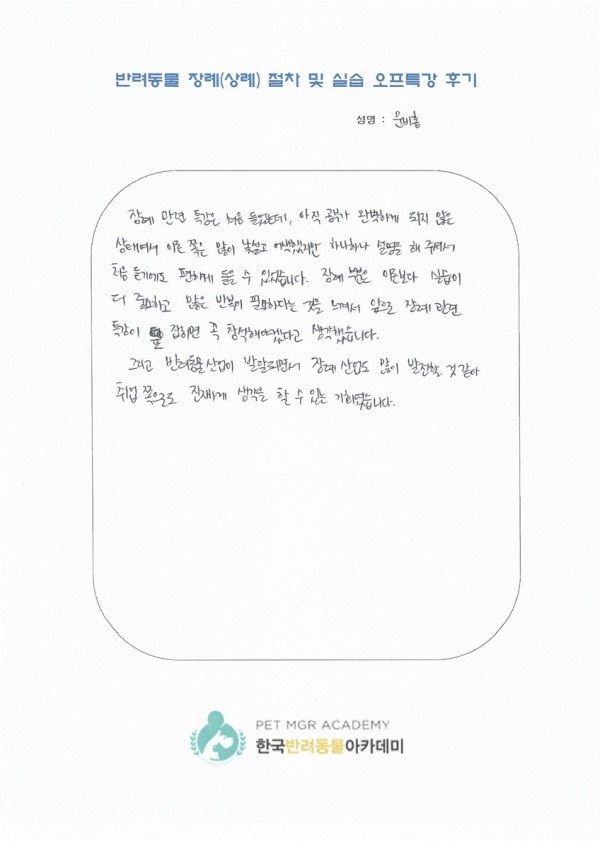 반려동물 장례(상례) 절차 및 실습 오프특강 후기
성명 :
장례 관련 특강은 처음 들었는데, 아직 공부가 완벽하게 되지 않은
상태여서 이론 쪽은 많이 낯설고 어색했지만 하나하나 설명을 해 주셔서
처음 듣기에도 편하게 들을 수 있었습니다. 장례 부분은 이론보다 실습이
더 중요하고 많은 반복이 필요하다는 것을 느껴서 앞으로 장례 관련
특강이 또 잡히면 꼭 참석해야겠다고 생각했습니다.
그리고 반려동물산업이 발달되면서 장례 산업도 많이 발전할 것 같아
취업 쪽으로도 진지하게 생각을 할 수 있는 기회였습니다.
PET MGR ACADEMY
한국반려동물아카데미